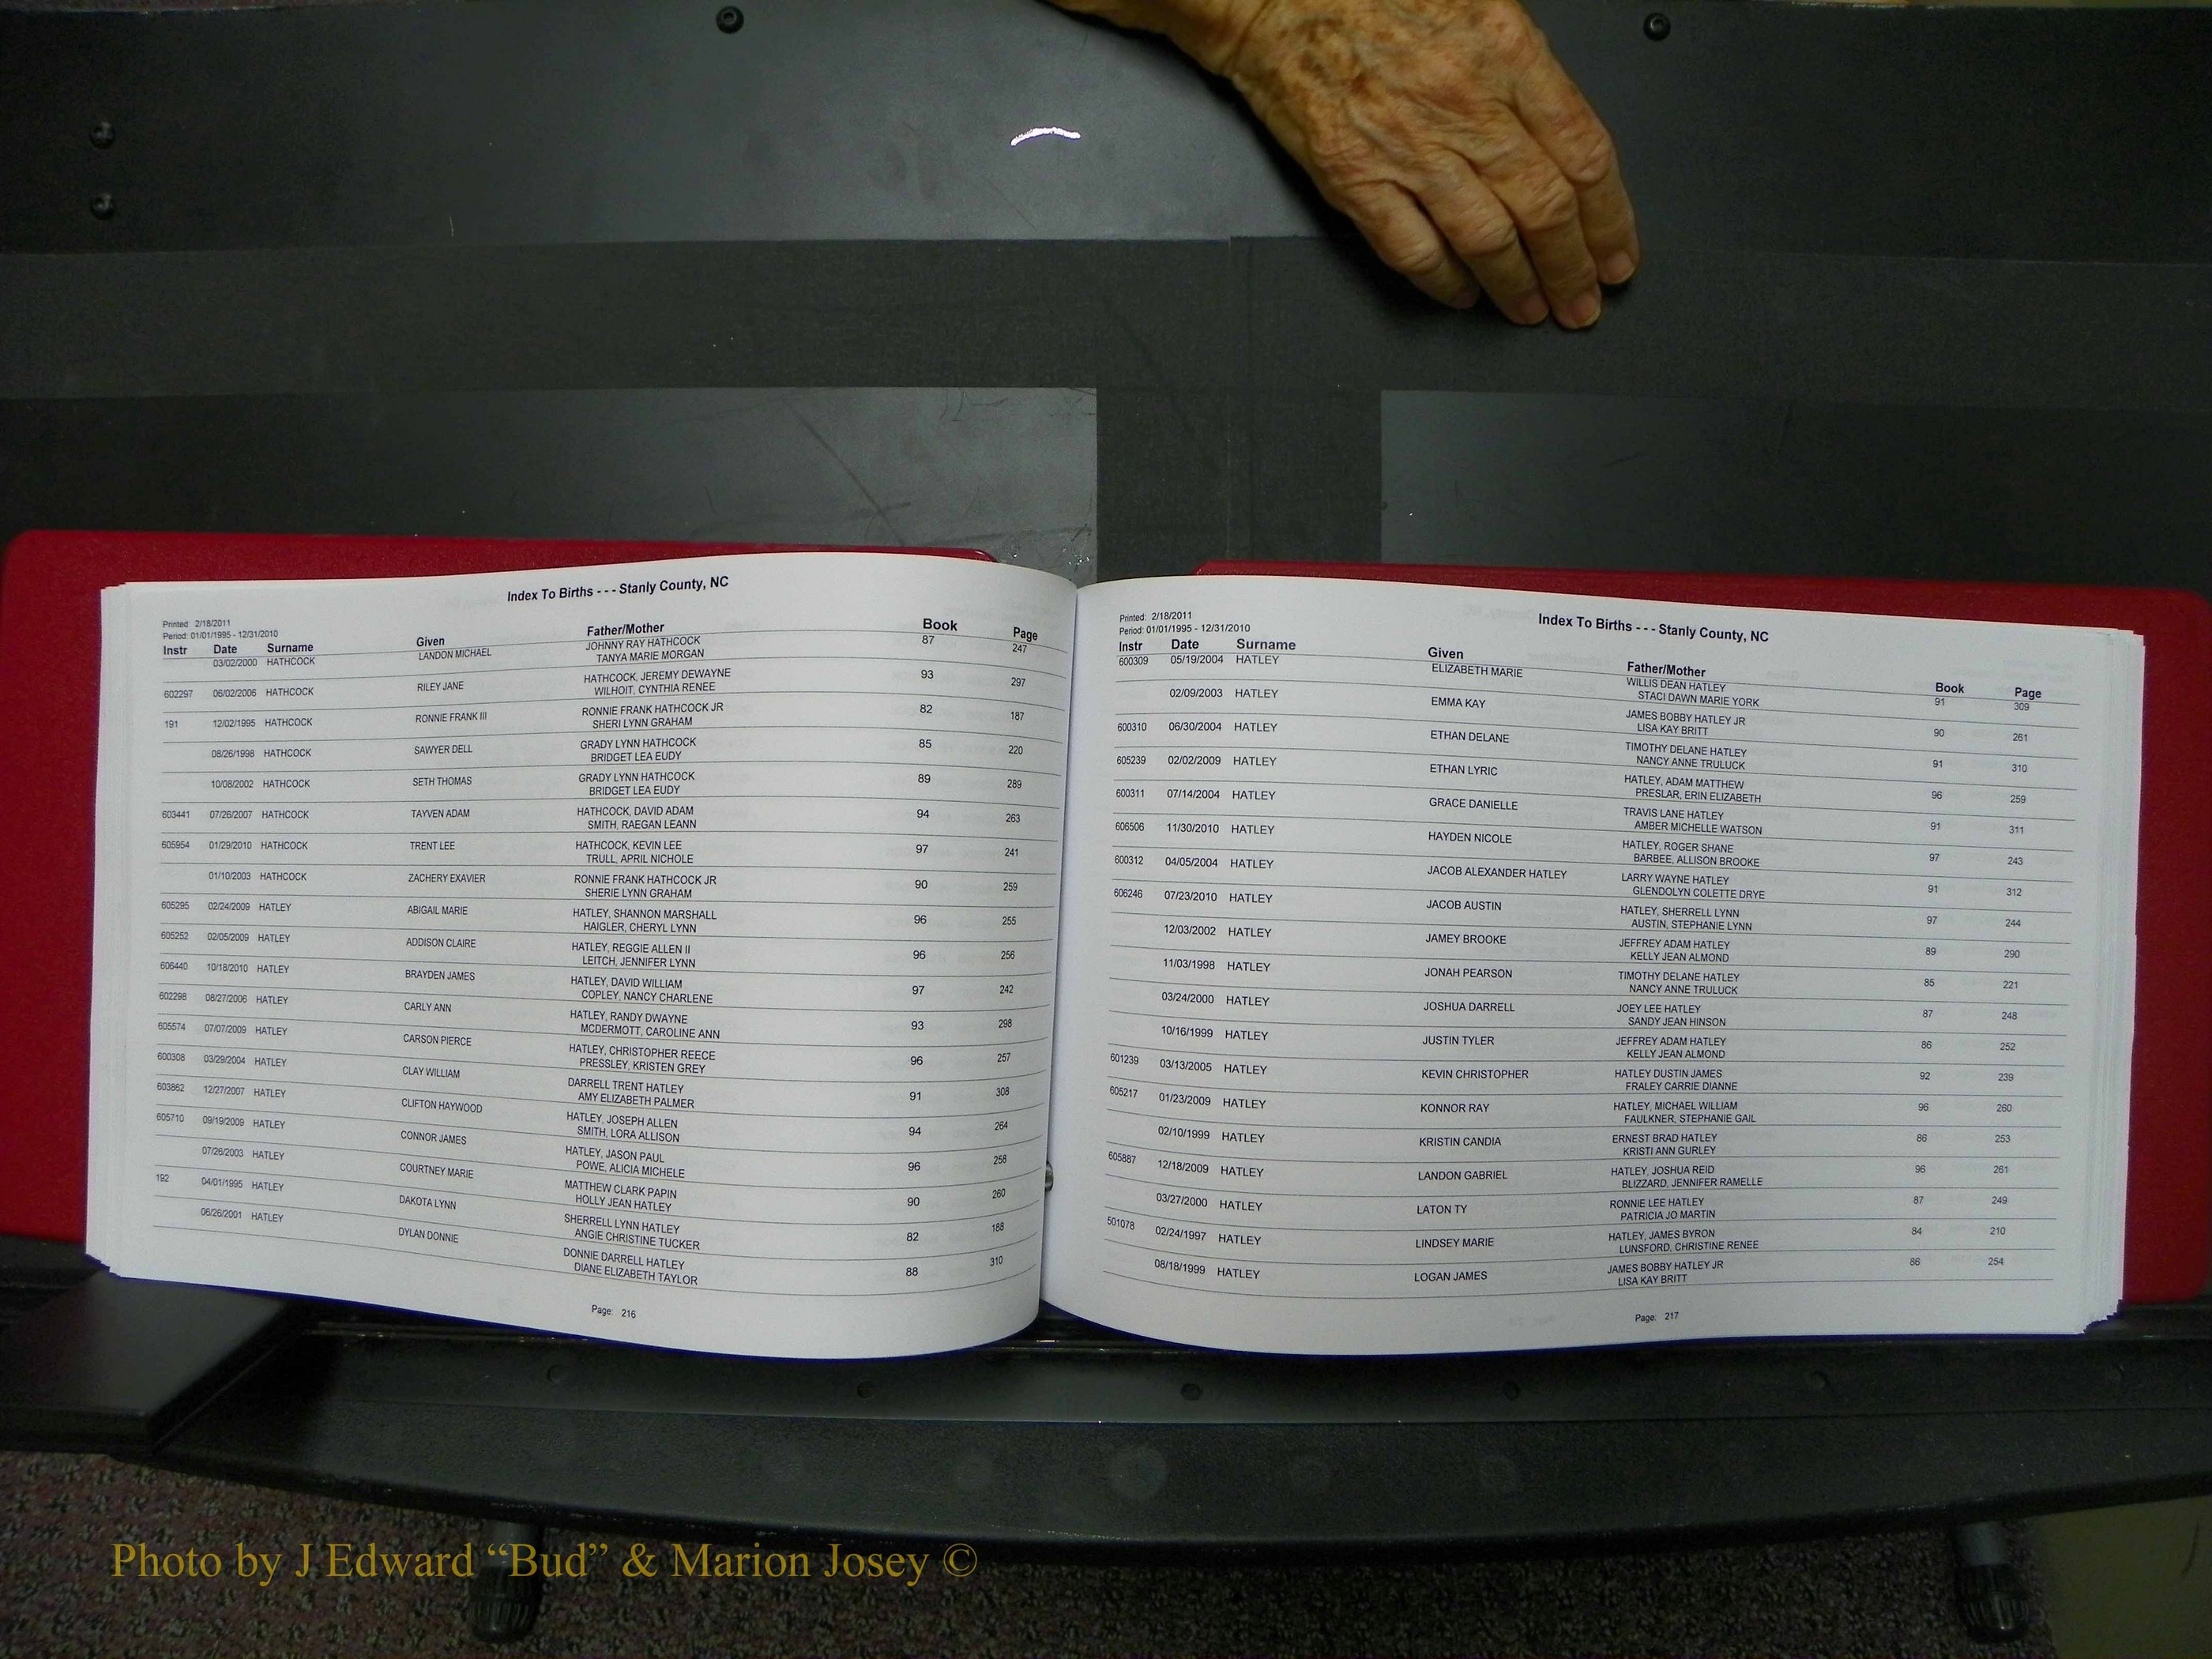 Index To Births - - - Stanly County, NC
Printed: 2/18/2011
Period: 01/01/1995 - 12/31/2010
Instr Date Surname Given Father/Mother Book Page
03/02/2000 HATHCOCK LANDON MICHAEL JOHNNY RAY HATHCOCK 87 247
TANYA MARIE MORGAN
602297 06/02/2006 HATHCOCK RILEY JANE HATHCOCK, JEREMY DEWAYNE 93 297
WILHOIT, CYNTHIA RENEE
191 12/02/1995 HATHCOCK RONNIE FRANK III RONNIE FRANK HATHCOCK JR 82 187
SHERI LYNN GRAHAM
08/26/1998 HATHCOCK SAWYER DELL GRADY LYNN HATHCOCK 85 220
BRIDGET LEA EUDY
10/08/2002 HATHCOCK SETH THOMAS GRADY LYNN HATHCOCK 89 289
BRIDGET LEA EUDY
603441 07/26/2007 HATHCOCK TAYVEN ADAM HATHCOCK, DAVID ADAM 94 263
SMITH, RAEGAN LEANN
605954 01/29/2010 HATHCOCK TRENT LEE HATHCOCK, KEVIN LEE 97 241
TRULL, APRIL NICHOLE
01/10/2003 HATHCOCK ZACHERY EXAVIER RONNIE FRANK HATHCOCK JR 90 259
SHERIE LYNN GRAHAM
605295 02/24/2009 HATLEY ABIGAIL MARIE HATLEY, SHANNON MARSHALL 96 255
HAIGLER, CHERYL LYNN
605252 02/05/2009 HATLEY ADDISON CLAIRE HATLEY, REGGIE ALLEN II 96 256
LEITCH, JENNIFER LYNN
606440 10/18/2010 HATLEY BRAYDEN JAMES HATLEY, DAVID WILLIAM 97 242
COPLEY, NANCY CHARLENE
602298 08/27/2006 HATLEY CARLY ANN HATLEY, RANDY DWAYNE 93 298
MCDERMOTT, CAROLINE ANN
605574 07/07/2009 HATLEY CARSON PIERCE HATLEY, CHRISTOPHER REECE 96 257
PRESSLEY, KRISTEN GREY
600308 03/29/2004 HATLEY CLAY WILLIAM DARRELL TRENT HATLEY 91 308
AMY ELIZABETH PALMER
603862 12/27/2007 HATLEY CLIFTON HAYWOOD HATLEY, JOSEPH ALLEN 94 264
SMITH, LORA ALLISON
605710 09/19/2009 HATLEY CONNOR JAMES HATLEY, JASON PAUL 96 258
POWE, ALICIA MICHELE
07/26/2003 HATLEY COURTNEY MARIE MATTHEW CLARK PAPIN 90 260
HOLLY JEAN HATLEY
192 04/01/1995 HATLEY DAKOTA LYNN SHERRELL LYNN HATLEY 82 188
ANGIE CHRISTINE TUCKER
06/26/2001 HATLEY DYLAN DONNIE DONNIE DARRELL HATLEY 88 310
DIANE ELIZABETH TAYLOR
Page: 216
Index To Births - - - Stanly County, NC
Printed: 2/18/2011
Period: 01/01/1995 - 12/31/2010
Instr Date Surname Given Father/Mother Book Page
600309 05/19/2004 HATLEY ELIZABETH MARIE WILLIS DEAN HATLEY 91 309
STACI DAWN MARIE YORK
02/09/2003 HATLEY EMMA KAY JAMES BOBBY HATLEY JR 90 261
LISA KAY BRITT
600310 06/30/2004 HATLEY ETHAN DELANE TIMOTHY DELANE HATLEY 91 310
NANCY ANNE TRULUCK
605239 02/02/2009 HATLEY ETHAN LYRIC HATLEY, ADAM MATTHEW 96 259
PRESLAR, ERIN ELIZABETH
600311 07/14/2004 HATLEY GRACE DANIELLE TRAVIS LANE HATLEY 91 311
AMBER MICHELLE WATSON
606506 11/30/2010 HATLEY HAYDEN NICOLE HATLEY, ROGER SHANE 97 243
BARBEE, ALLISON BROOKE
600312 04/05/2004 HATLEY JACOB ALEXANDER HATLEY LARRY WAYNE HATLEY 91 312
GLENDOLYN COLETTE DRYE
606246 07/23/2010 HATLEY JACOB AUSTIN HATLEY, SHERRELL LYNN 97 244
AUSTIN, STEPHANIE LYNN
12/03/2002 HATLEY JAMEY BROOKE JEFFREY ADAM HATLEY 89 290
KELLY JEAN ALMOND
11/03/1998 HATLEY JONAH PEARSON TIMOTHY DELANE HATLEY 85 221
NANCY ANNE TRULUCK
03/24/2000 HATLEY JOSHUA DARRELL JOEY LEE HATLEY 87 248
SANDY JEAN HINSON
10/16/1999 HATLEY JUSTIN TYLER JEFFREY ADAM HATLEY 86 252
KELLY JEAN ALMOND
601239 03/13/2005 HATLEY KEVIN CHRISTOPHER HATLEY DUSTIN JAMES 92 239
FRALEY CARRIE DIANNE
605217 01/23/2009 HATLEY KONNOR RAY HATLEY, MICHAEL WILLIAM 96 260
FAULKNER, STEPHANIE GAIL
02/10/1999 HATLEY KRISTIN CANDIA ERNEST BRAD HATLEY 86 253
KRISTI ANN GURLEY
605887 12/18/2009 HATLEY LANDON GABRIEL HATLEY, JOSHUA REID 96 261
BLIZZARD, JENNIFER RAMELLE
03/27/2000 HATLEY LATON TY RONNIE LEE HATLEY 87 249
PATRICIA JO MARTIN
501078 02/24/1997 HATLEY LINDSEY MARIE HATLEY, JAMES BYRON 84 210
LUNSFORD, CHRISTINE RENEE
08/18/1999 HATLEY LOGAN JAMES JAMES BOBBY HATLEY JR 86 254
LISA KAY BRITT
Page: 217
Photo by J Edward “Bud” & Marion Josey ©